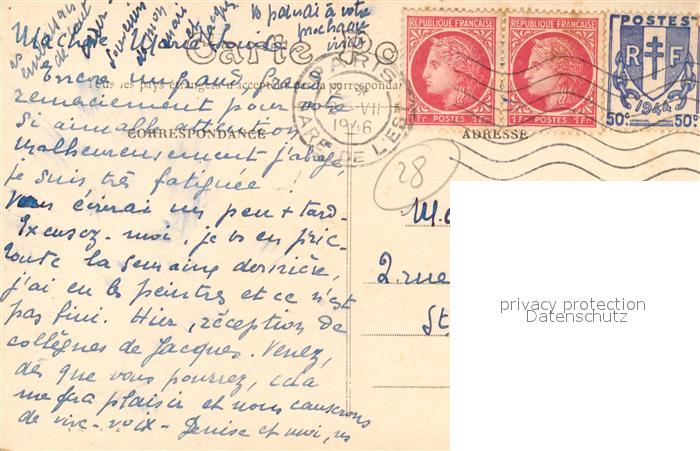 to passai à votre
prochaine
visite
Ma chère Marie Louise
Carte Po
Tous les pays étrangers n'acceptent pas la correspondance
Encore un pauv
remerciement pour
si aimable attention
CORRESPONDANCE
ADRESSE
malheureusement j'abrège,
je suis très fatiguée !
Vous écrirai un peu + tard.
Excusez-moi, je
toute la semaine dernière,
j'ai eu les peintres et ce n'est
pas fini. Hier, réception de
collègnes de Jacques. Venez,
dès que vous pourrez, cela
me fera plaisir et nous causerons
de vive-voix - Denise et moi, vs
PARIS
VII
1946
GARE DE L'EST
REPUBLIQUE FRANÇAISE
1Fr POSTES 1Fr
REPUBLIQUE FRANÇAISE
1Fr POSTES 1Fr
POSTES
R F
1944
50c 50c
28
2, rue
St
privacy protection
Datenschutz